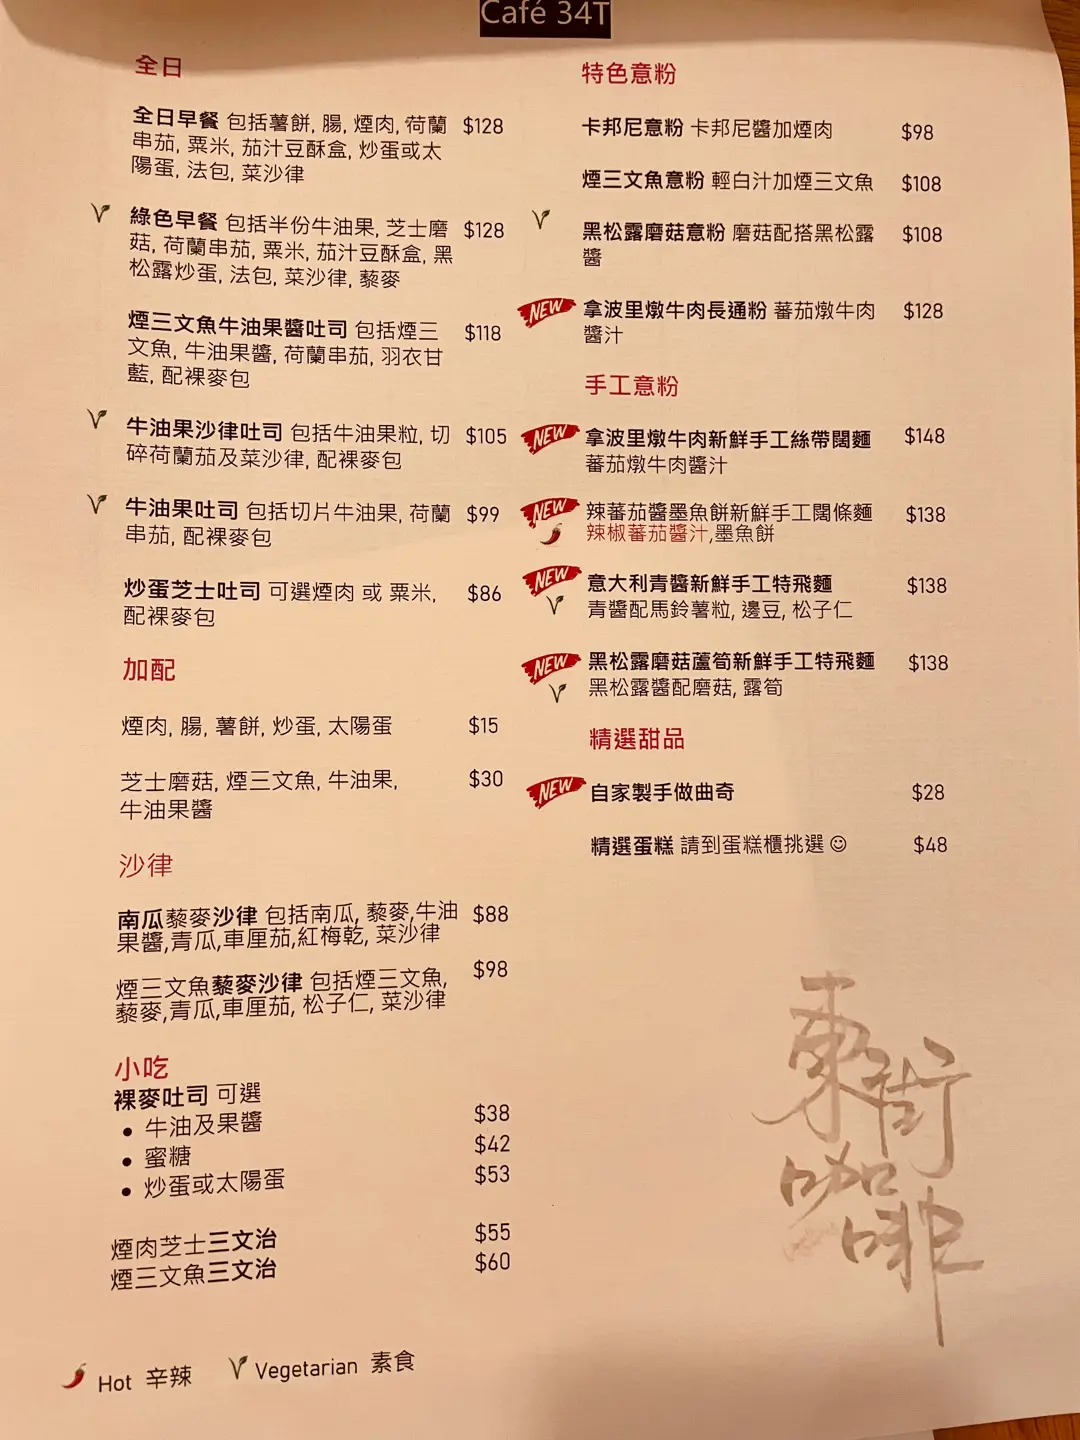 Café 34T
全日
全日早餐 包括薯餅, 腸, 煙肉, 荷蘭 $128
串茄, 粟米, 茄汁豆酥盒, 炒蛋或太
陽蛋, 法包, 菜沙律
綠色早餐 包括半份牛油果, 芝士磨 $128
菇, 荷蘭串茄, 粟米, 茄汁豆酥盒, 黑
松露炒蛋, 法包, 菜沙律, 藜麥
煙三文魚牛油果醬吐司 包括煙三 $118
文魚, 牛油果醬, 荷蘭串茄, 羽衣甘
藍, 配裸麥包
牛油果沙律吐司 包括牛油果粒, 切 $105
碎荷蘭茄及菜沙律, 配裸麥包
牛油果吐司 包括切片牛油果, 荷蘭 $99
串茄, 配裸麥包
炒蛋芝士吐司 可選煙肉 或 粟米, $86
配裸麥包
加配
煙肉, 腸, 薯餅, 炒蛋, 太陽蛋 $15
芝士磨菇, 煙三文魚, 牛油果, $30
牛油果醬
沙律
南瓜藜麥沙律 包括南瓜, 藜麥,牛油 $88
果醬,青瓜,車厘茄,紅梅乾, 菜沙律
煙三文魚藜麥沙律 包括煙三文魚, $98
藜麥,青瓜,車厘茄, 松子仁, 菜沙律
小吃
裸麥吐司 可選
• 牛油及果醬 $38
• 蜜糖 $42
• 炒蛋或太陽蛋 $53
煙肉芝士三文治 $55
煙三文魚三文治 $60
Hot 辛辣 Vegetarian 素食
特色意粉
卡邦尼意粉 卡邦尼醬加煙肉 $98
煙三文魚意粉 輕白汁加煙三文魚 $108
黑松露磨菇意粉 磨菇配搭黑松露 $108
醬
NEW 拿波里燉牛肉長通粉 蕃茄燉牛肉 $128
醬汁
手工意粉
NEW 拿波里燉牛肉新鮮手工絲帶闊麵 $148
蕃茄燉牛肉醬汁
NEW 辣蕃茄醬墨魚餅新鮮手工闊條麵 $138
辣椒蕃茄醬汁,墨魚餅
NEW 意大利青醬新鮮手工特飛麵 $138
青醬配馬鈴薯粒, 邊豆, 松子仁
NEW 黑松露磨菇蘆筍新鮮手工特飛麵 $138
黑松露醬配磨菇, 露筍
精選甜品
NEW 自家製手做曲奇 $28
精選蛋糕 請到蛋糕櫃挑選☺ $48
東街
咖啡